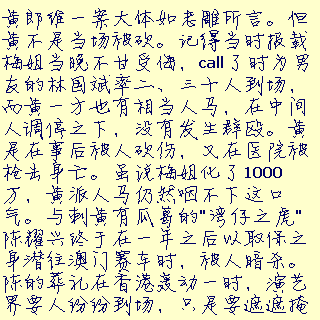 黄郎维一案大体如老雕所言。但
黄不是当场被砍。记得当时报载
梅姐当晚不甘受侮，call了时为男
友的林国斌率二、三十人到场，
而黄一方也有相当人马，在中间
人调停之下，没有发生群殴。黄
是在事后被人砍伤，又在医院被
枪击身亡。虽说梅姐化了1000
万，黄派人马仍然咽不下这口
气。与刺黄有瓜葛的"湾仔之虎"
陈耀兴终于在一年之后以取保之
身潜往澳门赛车时，被人暗杀。
陈的葬礼在香港轰动一时，演艺
界要人纷纷到场，只是要遮遮掩